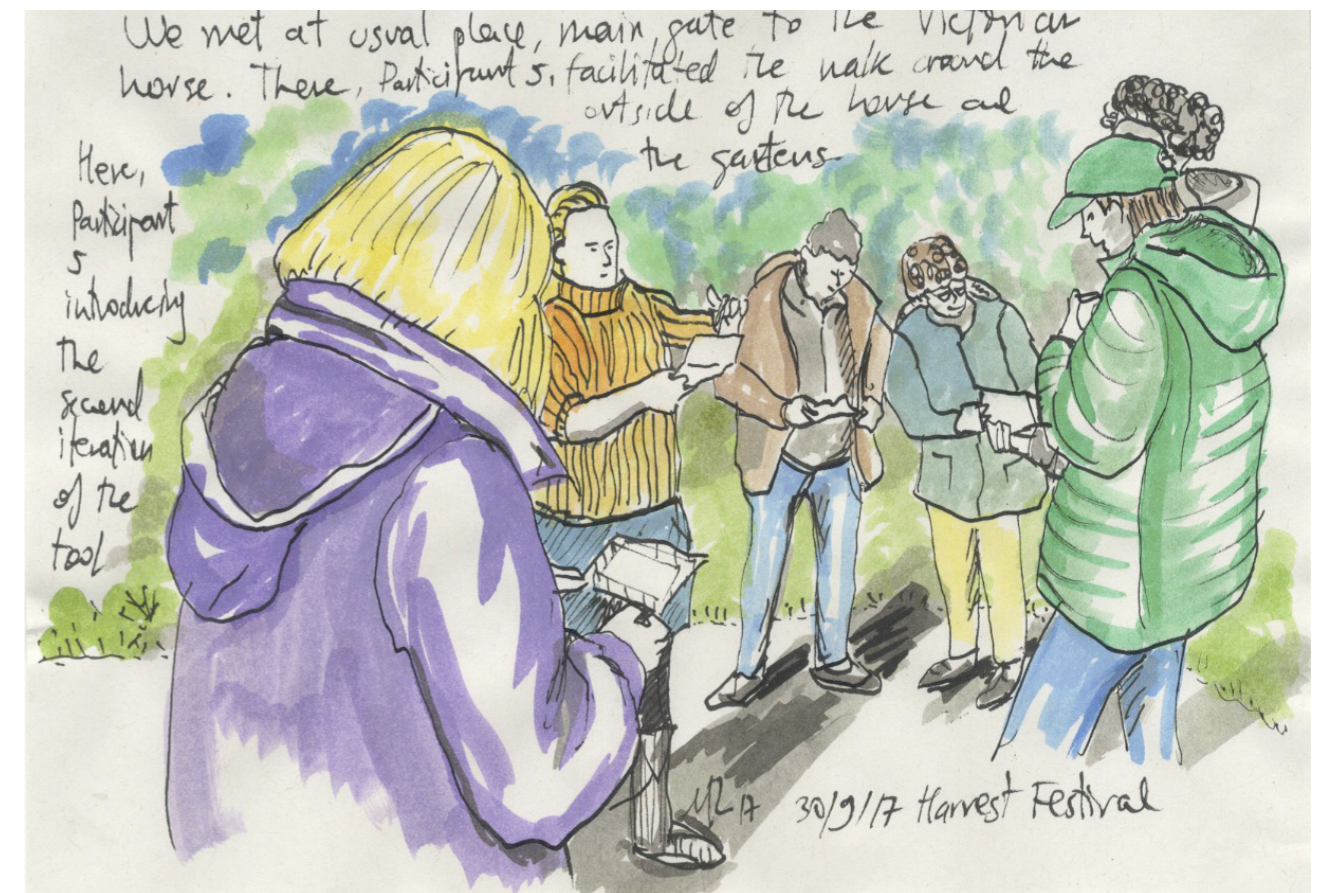 We met at usual place, main gate to the Victorian
horse. There, Participant 5, facilitated the walk around the
outside of the horse and
the gardens
Here,
Participant
5
introducing
the
second
iteration
of the
tool
30/9/17 Harvest Festival